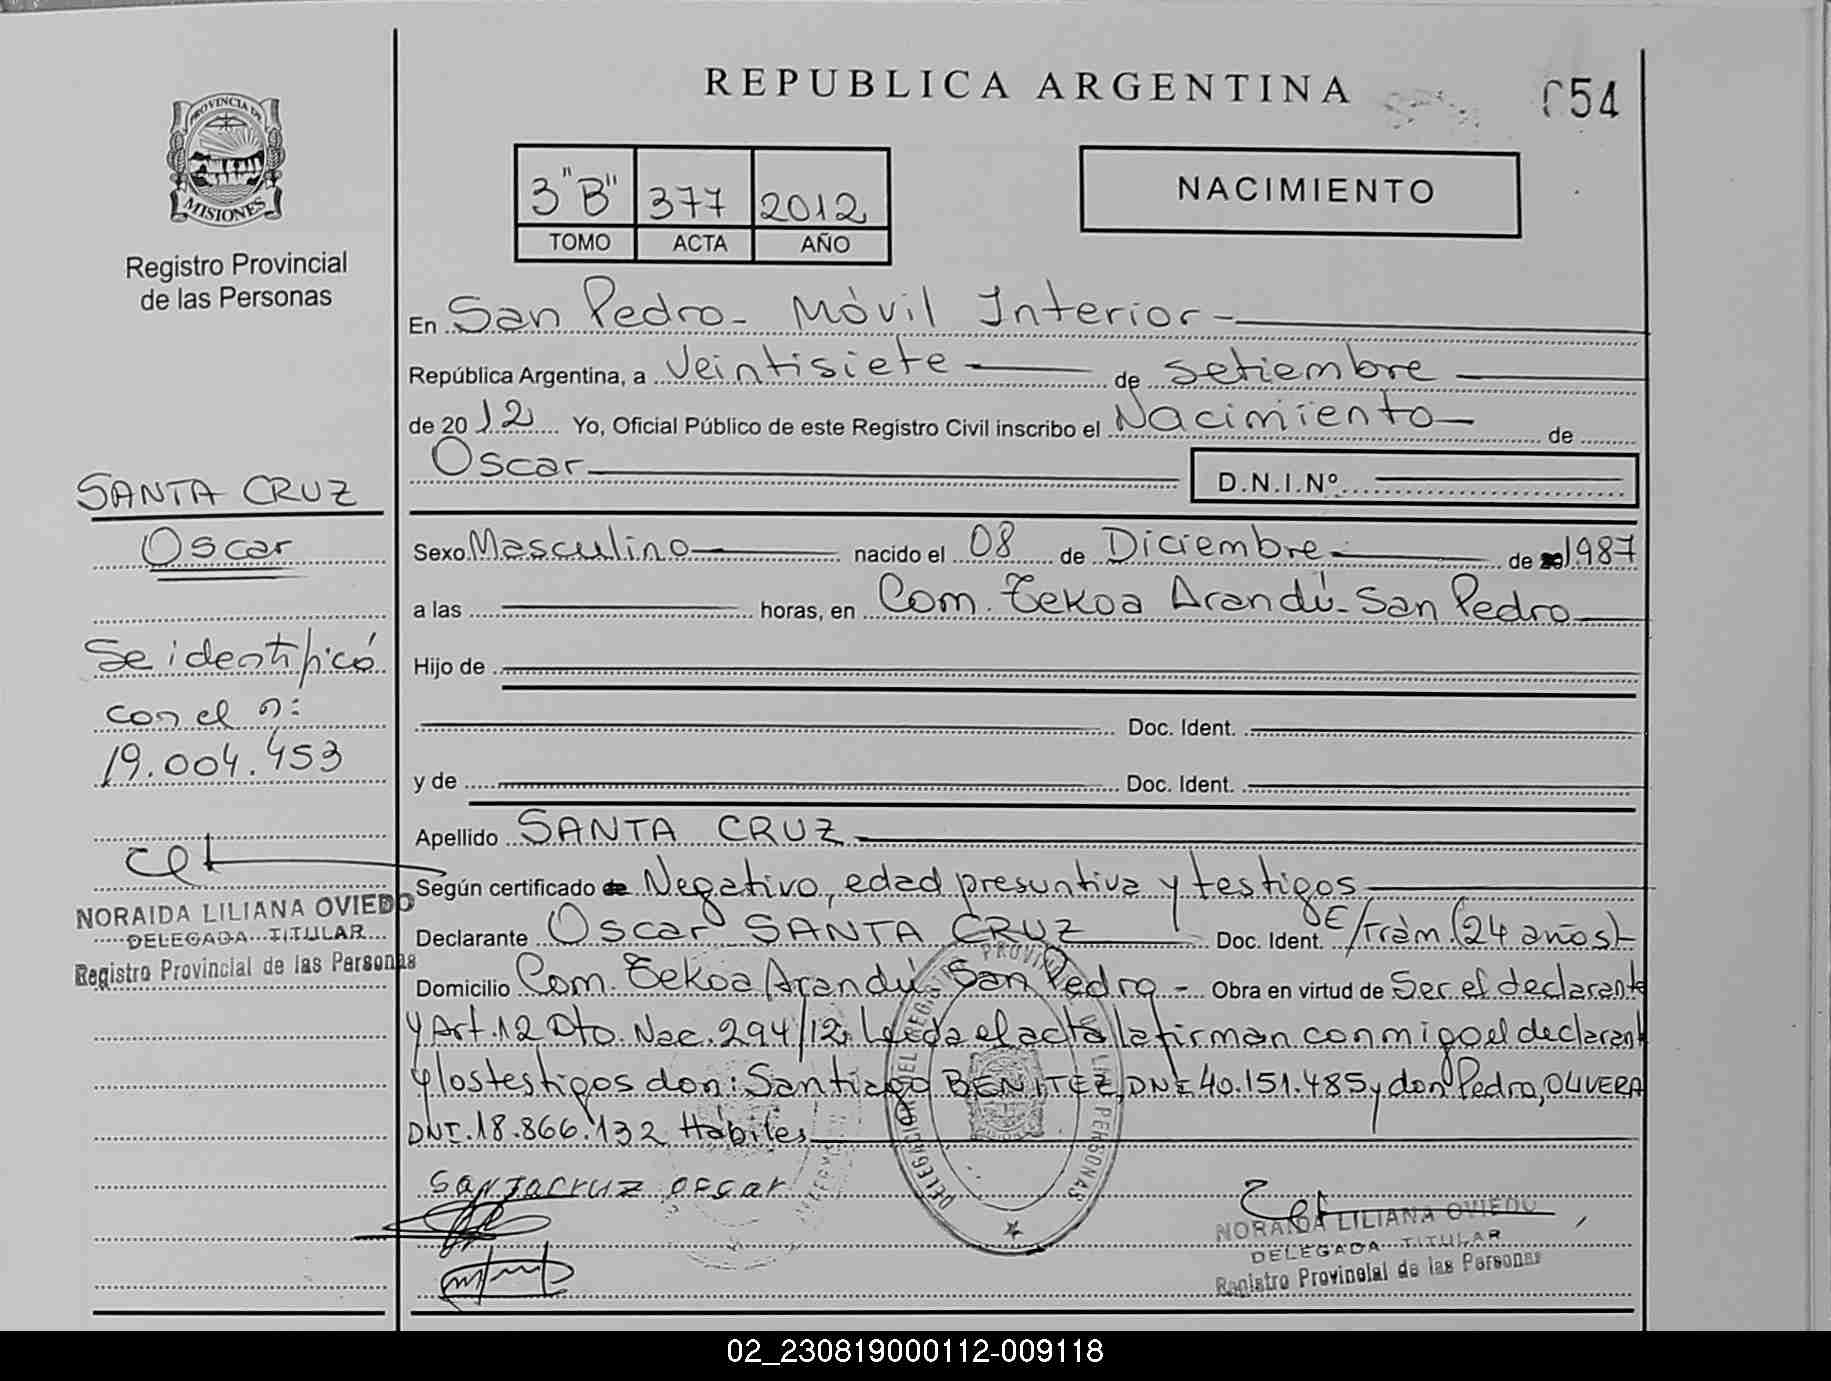 REPUBLICA ARGENTINA
054
PROVINCIA DE
MISIONES
Registro Provincial
de las Personas
3 "B" 377 2012
TOMO ACTA AÑO
NACIMIENTO
En San Pedro - Móvil Interior -
República Argentina, a Veintisiete de Setiembre
de 2012 Yo, Oficial Público de este Registro Civil inscribo el Nacimiento de
Oscar
D.N.I.Nº
SANTA CRUZ
Oscar
Se identificó
con el n:
19.004.453
NORAIDA LILIANA OVIEDO
DELEGADA TITULAR
Registro Provincial de las Personas
Sexo Masculino nacido el 08 de Diciembre de 1987
a las horas, en Com. Tekoa Arandú - San Pedro
Hijo de
Doc. Ident.
y de Doc. Ident.
Apellido SANTA CRUZ
Según certificado de Negativo, edad presuntiva y testigos
Declarante Oscar SANTA CRUZ Doc. Ident. E/Trám. (24 años)
Domicilio Com. Tekoa Arandú San Pedro - Obra en virtud de Ser el declarante
y Art. 12 Dto. Nac. 294/12. Leída el acta la firman conmigo el declarant
y los testigos don: Santiago BENITEZ, DNI 40.151.485 y don Pedro, OLIVERA
DNI. 18.866.132 Habiles
Santacruz oscar
NORAIDA LILIANA OVIEDO
DELEGADA TITULAR
Registro Provincial de las Personas
02_230819000112-009118